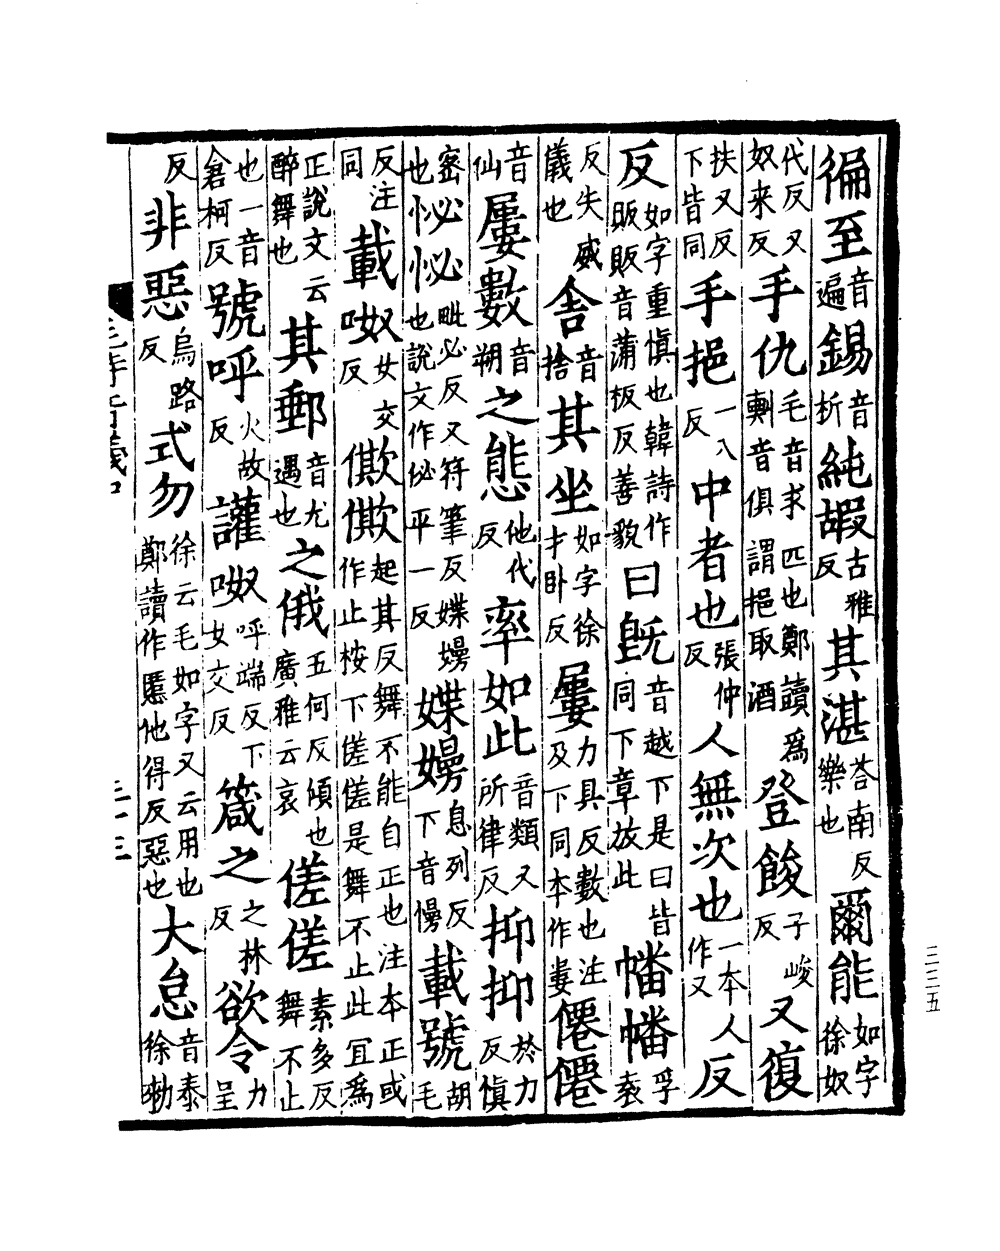 徧至音遍錫音析純嘏古雅反其湛荅南反樂也爾能如字徐奴
代反又奴来反手仇毛音求匹也鄭讀爲㪺音俱謂挹取酒登餕子峻反又復
扶又反下皆同手挹一入反中者也張仲反人無次也一本人作又反
反如字重慎也韓詩作眅眅音蒲板反善貌曰既音越下是曰皆同下章放此幡幡孚袁
反失威儀也舍音捨其坐如字徐才卧反屢力具反數也注及下同本作婁僊僊
音仙屢數音朔之態他代反率如此音類又所律反抑抑於力反慎
密也怭怭毗必反又符筆反媟嫚也說文作佖平一反媟嫚息列反下音慢載號胡毛
反注同載呶女交反僛僛起其反舞不能自正也注本正或作止桉下傞傞是舞不止此宜爲
正說文云醉舞也其郵音尤過也之俄五何反傾也廣雅云衺傞傞素多反舞不止
也一音倉柯反號呼火故反讙呶呼端反下女交反箴之之林反欲令力呈
反非惡烏路反式勿徐云毛如字又云用也鄭讀作慝他得反惡也大怠音泰徐勑
三十三
三三五